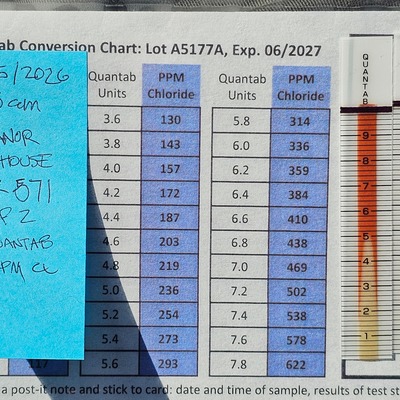 ab Conversion Chart: Lot A5177A, Exp. 06/2027
5/2026
MANOR
HOUSE
571
P 2
QUANTAB
PPM CL
Quantab Units PPM Chloride Quantab Units PPM Chloride
3.6 130 5.8 314
3.8 143 6.0 336
4.0 157 6.2 359
4.2 172 6.4 384
4.4 187 6.6 410
4.6 203 6.8 438
4.8 219 7.0 469
5.0 236 7.2 502
5.2 254 7.4 538
5.4 273 7.6 578
117 5.6 293 7.8 622
a post-it note and stick to card: date and time of sample, results of test st
QUANTAB
9
8
7
6
5
4
3
2
1